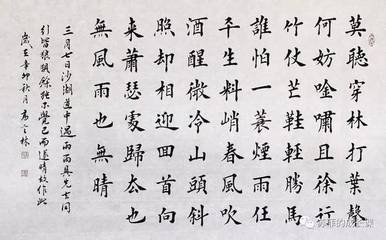 莫聽穿林打葉聲
何妨吟嘯且徐行
竹杖芒鞋輕勝馬
誰怕一蓑煙雨任
平生料峭春風吹
酒醒微冷山頭斜
照却相迎回首向
來蕭瑟處歸去也
無風雨也無晴
三月七日沙湖道中遇雨雨具先去同
行皆狼狽餘獨不覺已而遂晴故作此
歲在辛卯秋月